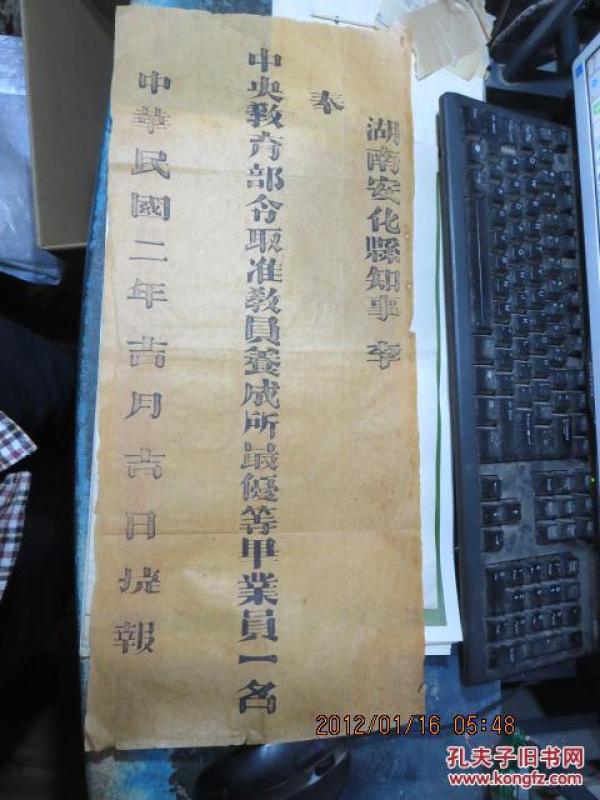 湖南安化縣知事李
奉
中央敎育部令取准敎員養成所最優等畢業員一名
中華民國二年吉月吉日捷報
2012/01/16 05:48
孔夫子旧书网
www.kongfz.com